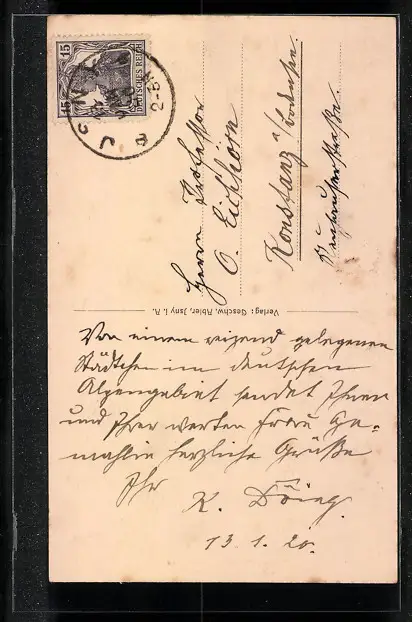 15
15
DEUTSCHES REICH
2-3N
Herrn Professor
O. Eichhorn
Konstanz a/Bodensee.
Verlag: Geschw. Abler, Jsny i. A.
Von einem reizend gelegenen
Städtchen im deutschen
Alpengebiet sendet Ihnen
und Ihrer werten Frau Ge-
mahlin herzliche Grüße
Ihr
K. Döing.
13. 1. 20.